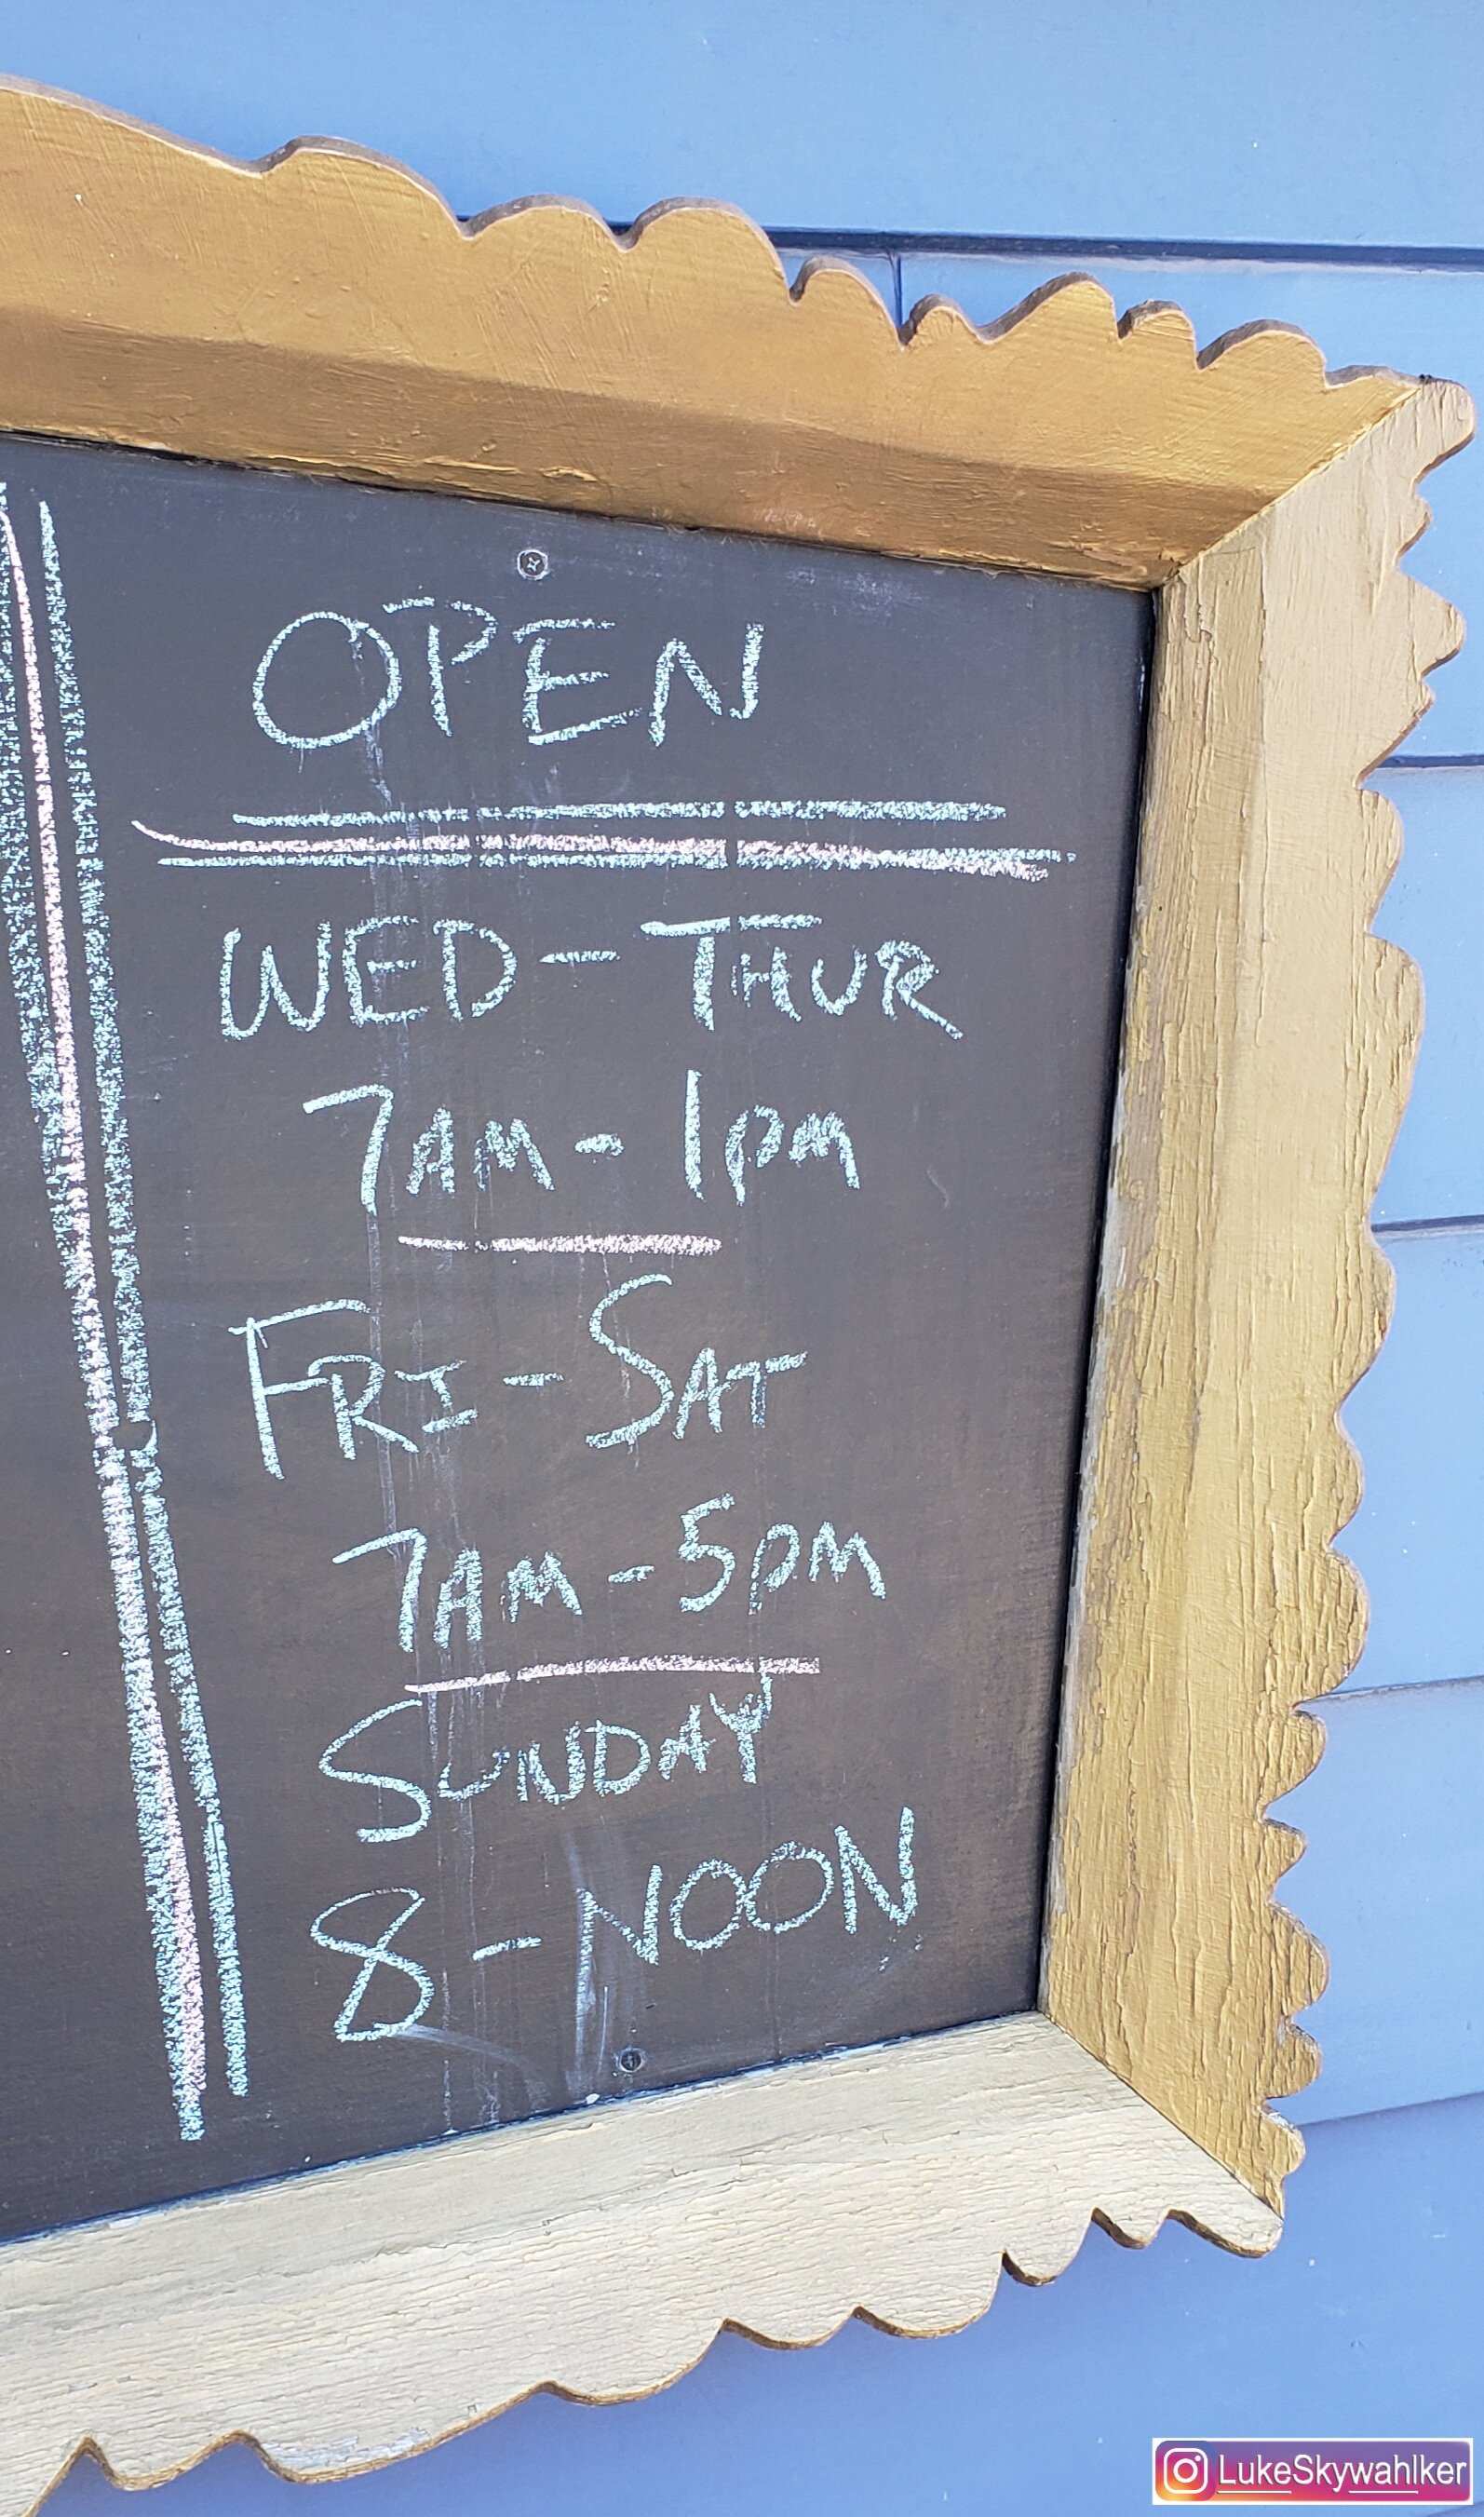 OPEN
WED - THUR
7AM - 1PM
FRI - SAT
7AM - 5PM
SUNDAY
8 - NOON
LukeSkywahlker